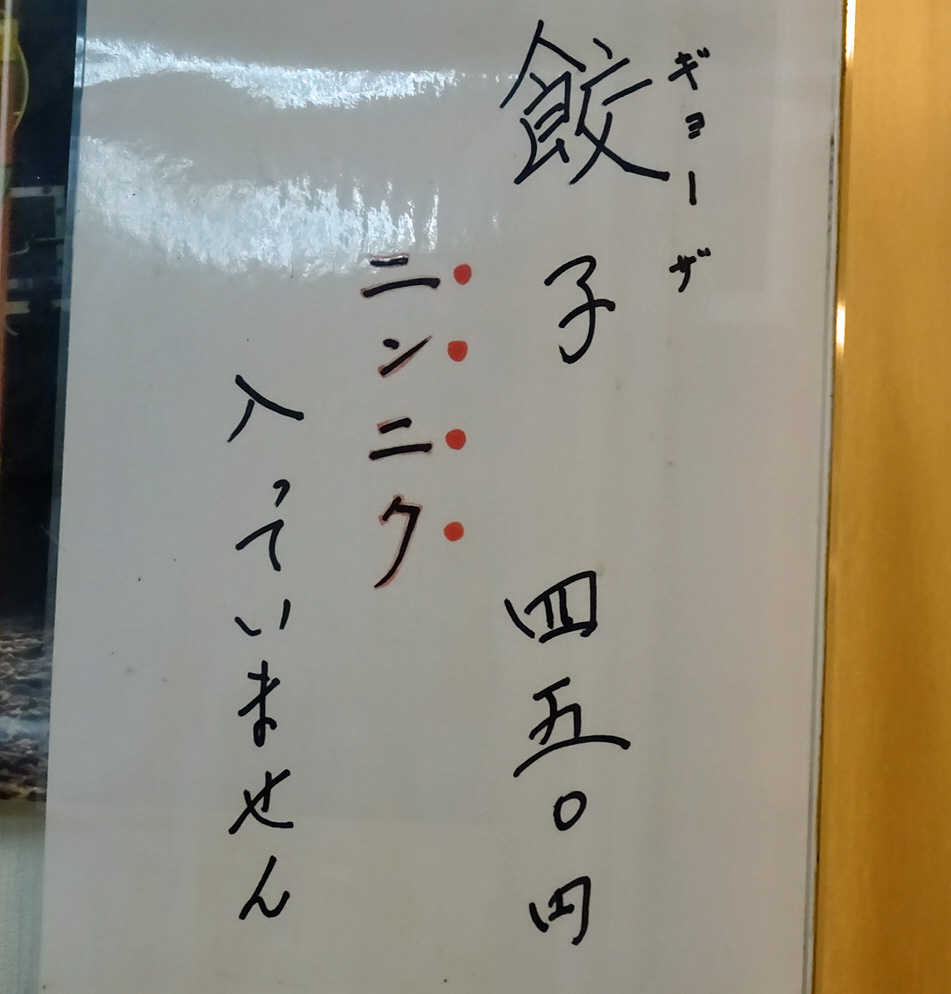 ギョーザ
餃子 四五〇円
ニンニク
入っていません